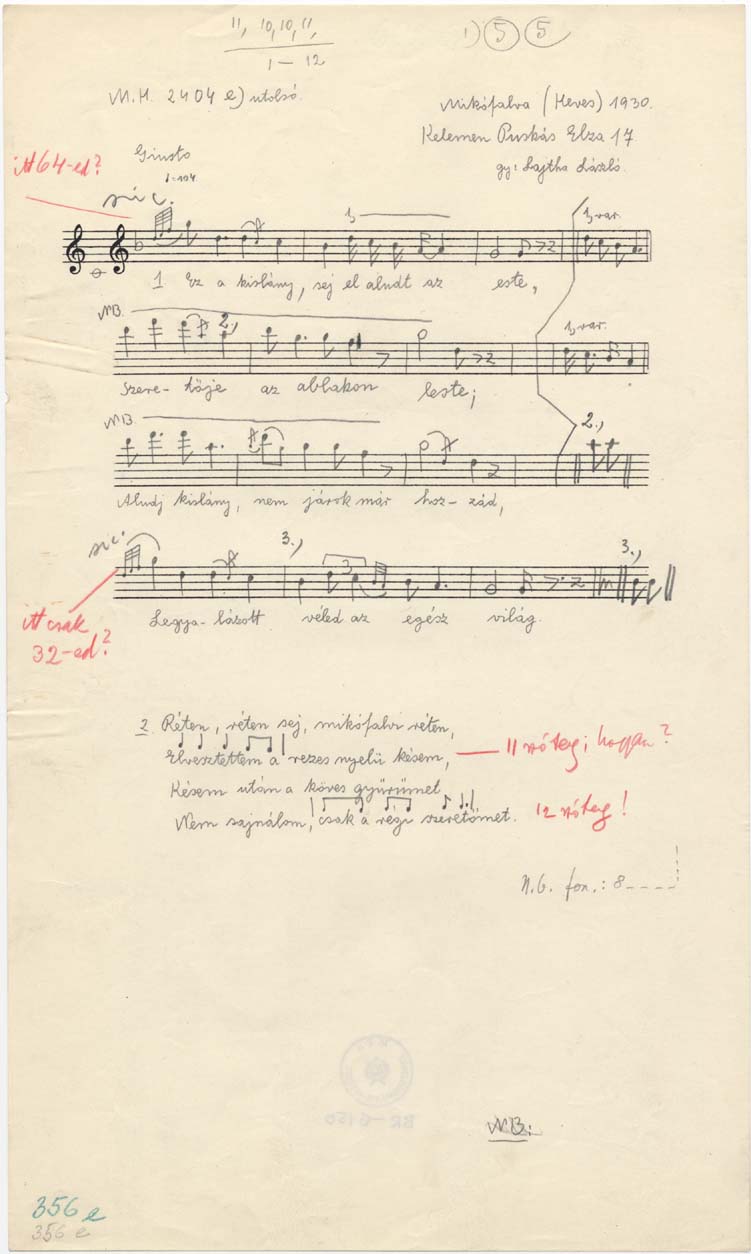 11, 10, 10, 11,
1 – 12
1) 5 5
M.H. 2404 e) utolsó.
Mikófalva (Heves) 1930.
Kelemen Puskás Elza 17
gy: Lajtha László.
Giusto
♩=104
itt 64-ed?
sic.
1,
1, var.
1 Ez a kislány, sej el aludt az este,
NB.
2.,
1, var.
Szere- tője az ablakon leste;
NB.
2.,
Aludj kislány, nem járok már hoz- zád,
sic.
3.,
3
3.,
itt csak 32-ed?
Legya- lázott véled az egész világ.
2. Réten, réten sej, mikófalvi réten,
Elvesztettem a rezes nyelű késem, — 11 szótag; hogyan?
Késem után a köves gyűrűmet
Nem sajnálom, csak a régi szeretőmet. 12 szótag!
fon.: 8
BR-6150
NB:
356 e
356 e